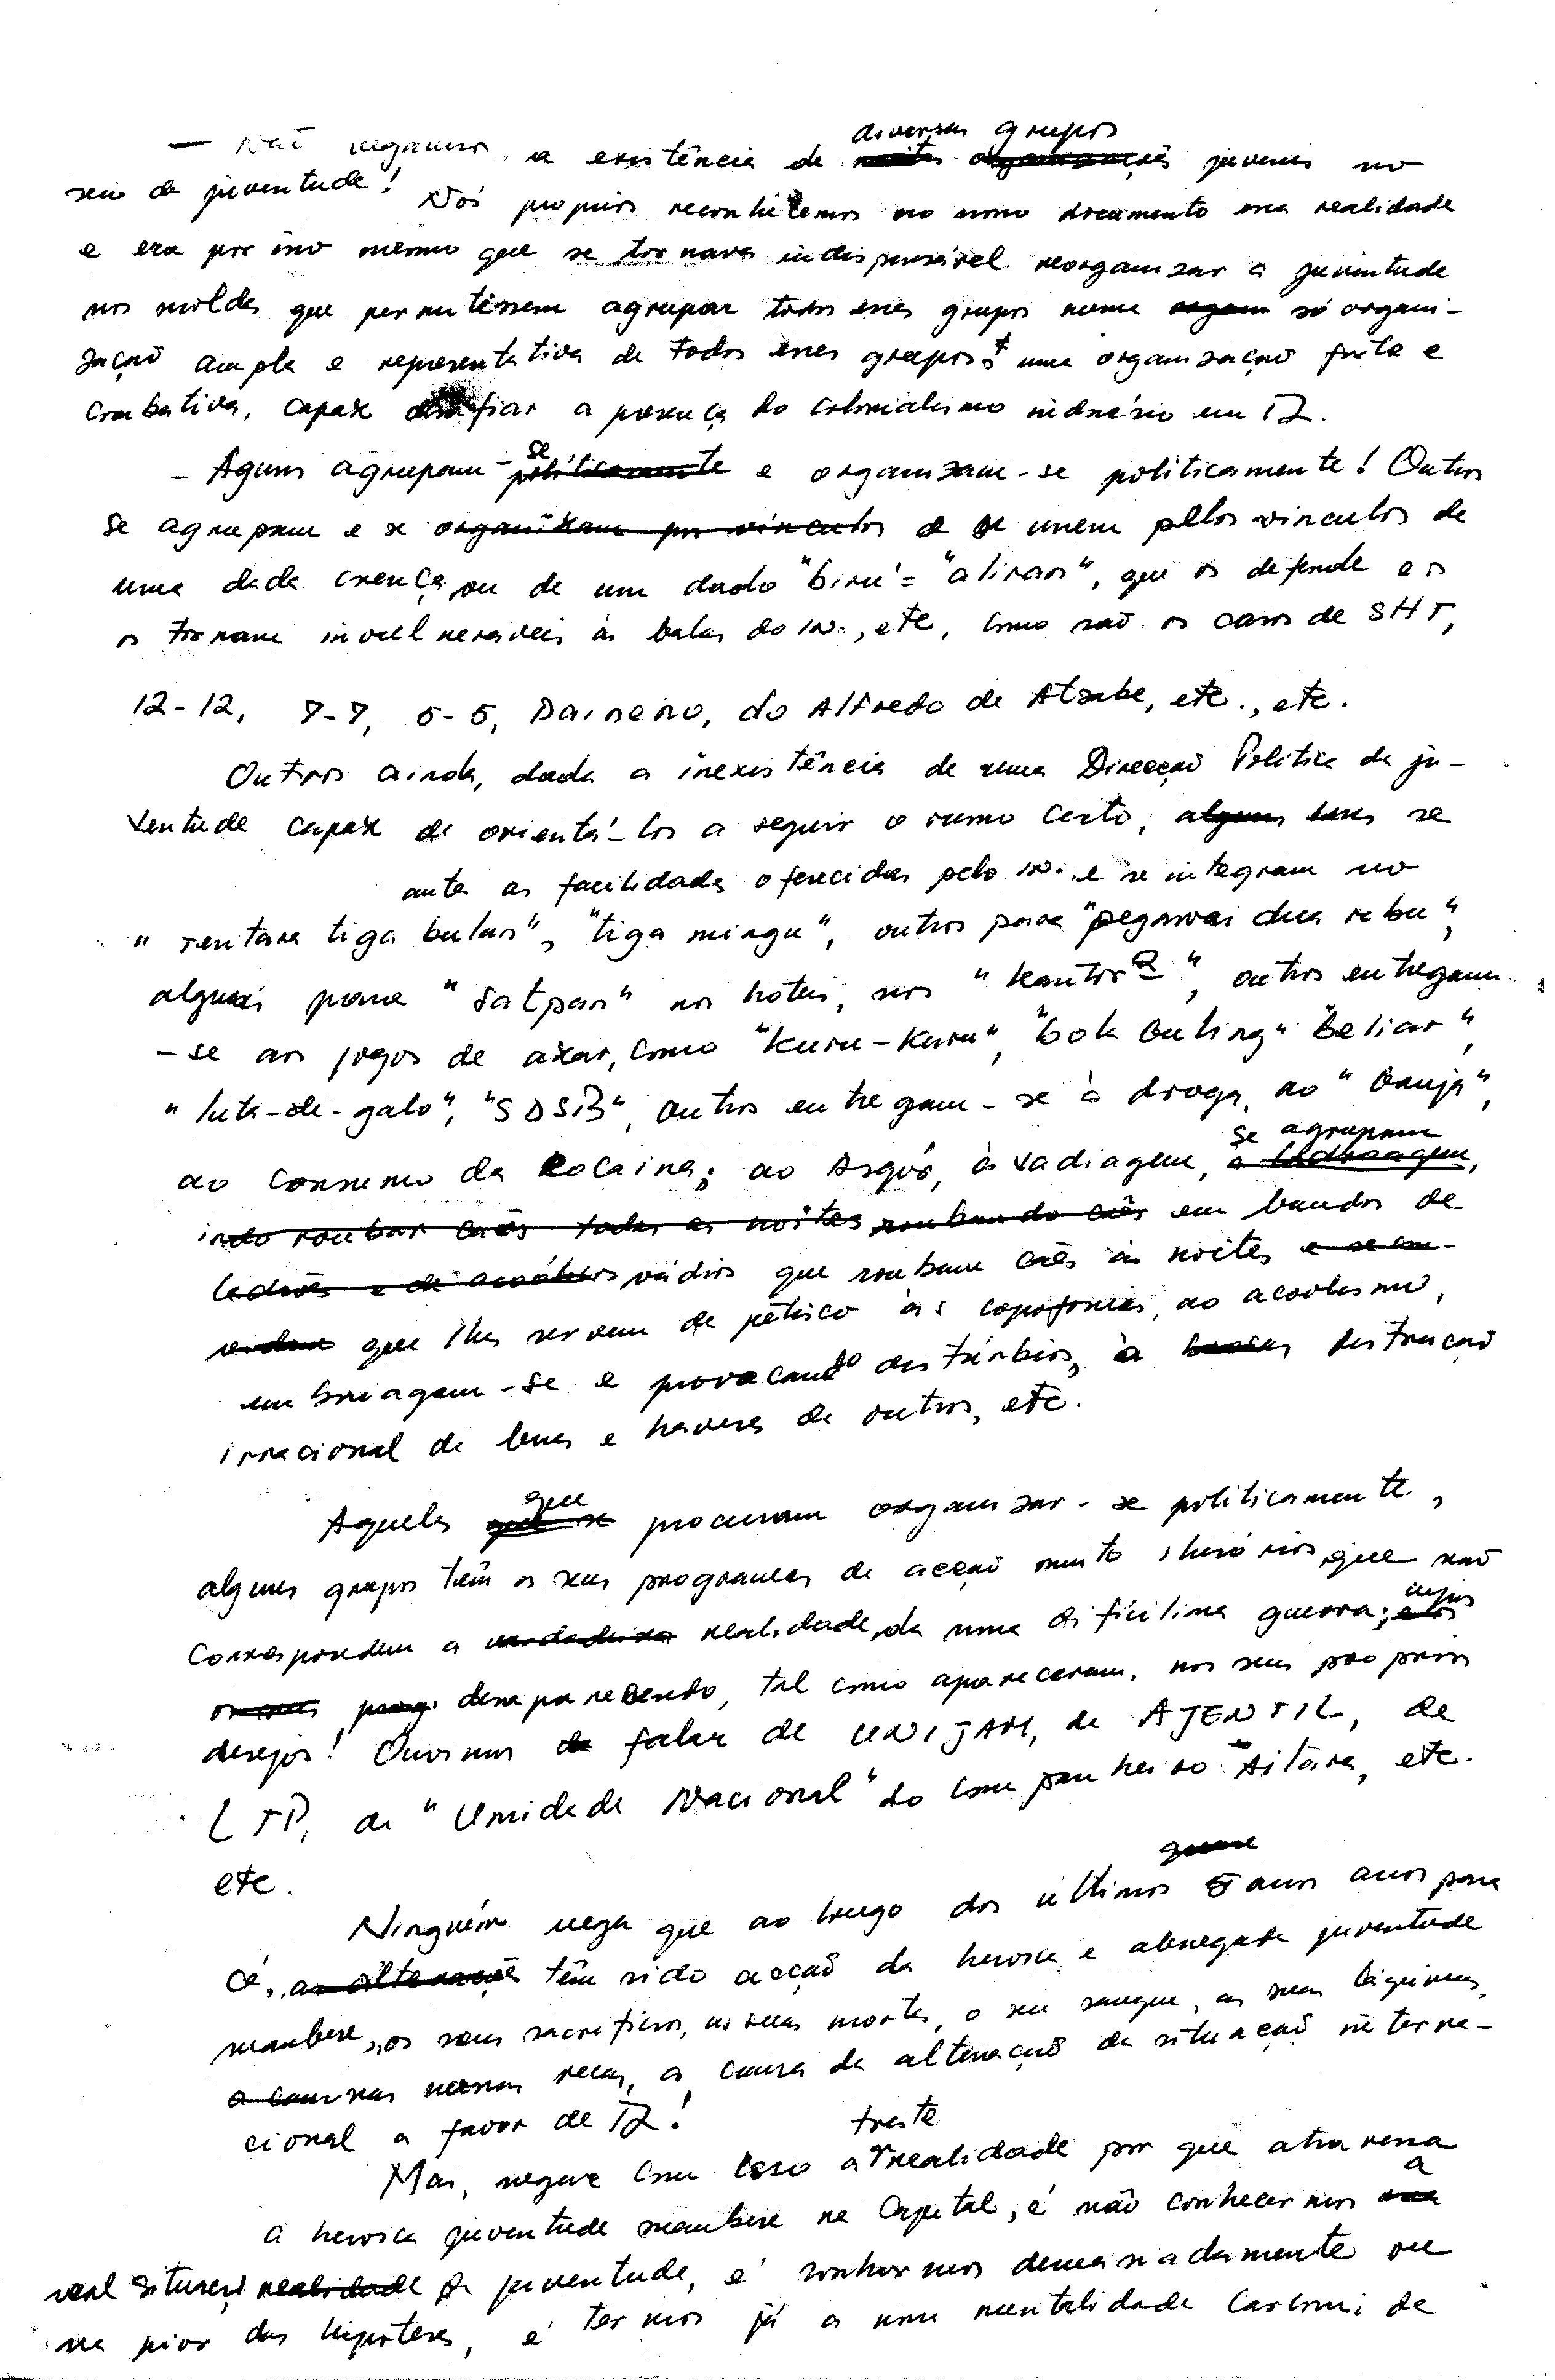 — Não negamos a existência de diversos grupos juvenis no
seio da juventude! Nós próprios reconhecemos no nosso documento essa realidade
e era por isso mesmo que se tornava indispensável reorganizar a juventude
nos moldes que permitissem agrupar todos esses grupos numa só organi-
zação ampla e representativa de todos esses grupos, uma organização forte e
combativa, capaz desafiar a presença do colonialismo indonésio em TL.
- Aguns agrupam-se e organizam-se politicamente! Outros
se agrupam e se unem pelos vínculos de
uma dada crença ou de um dado "biru" = "aliran", que os defende e os
os tornam invulneráveis às balas do in., etc, como são os casos de SHT,
12-12, 7-7, 5-5, do Alfredo de Atsabe, etc., etc.
Outros ainda, dada a inexistência de uma Direcção Política da ju-
ventude capaz de orientá-los a seguir o rumo certo, se
ante as facilidades oferecidas pelo in. e se integram no
"tentara tiga bulan", "tiga minggu", outros para "pegawai dua ribu",
alguns para "satpan" nos hotéis, nos "kantor2", outros entregam-
-se aos jogos de azar, como "kuru-kuru", "bola guling" "beliar",
"luta-de-galo", "SDSB", outros entregam-se à droga, ao "ganja",
ao consumo da cocaína; ao à vadiagem, se agrupam
em bandos de
vádios que roubam cães às noites
que lhes servem de petisco às copofonias, ao acoolismo,
embriagam-se e provocando distúrbios, à destruição
irracional de bens e haveres de outros, etc.
Aqueles que procuram organizar-se politicamente,
alguns grupos têm os seus programas de acção muito ilusórios, que não
correspondem a realidade da uma dificílima guerra; cujos
desaparecendo, tal como apareceram, nos seus próprios
desejos! Ouvimos falar de UNIJAM, de AJENTIL, de
LTP, de "Unidade Nacional" do companheiro Aitara, etc.
etc.
Ninguém nega que ao longo dos últimos 5 anos anos para
cá, têm sido acção da heroica e abnegada juventude
maubere, os seus sacrifícios, as suas mortes, o seu sangue, as suas lágrimas,
nas a causa da alteração da situação interna-
cional a favor de TL!
Mas, negar com isso a triste realidade por que atravessa
a heroica juventude maubere na Capital, é não conhecermos a
real situação da juventude, é sonharmos demasiadamente ou
na pior das hipóteses, é termos já a uma mentalidade de